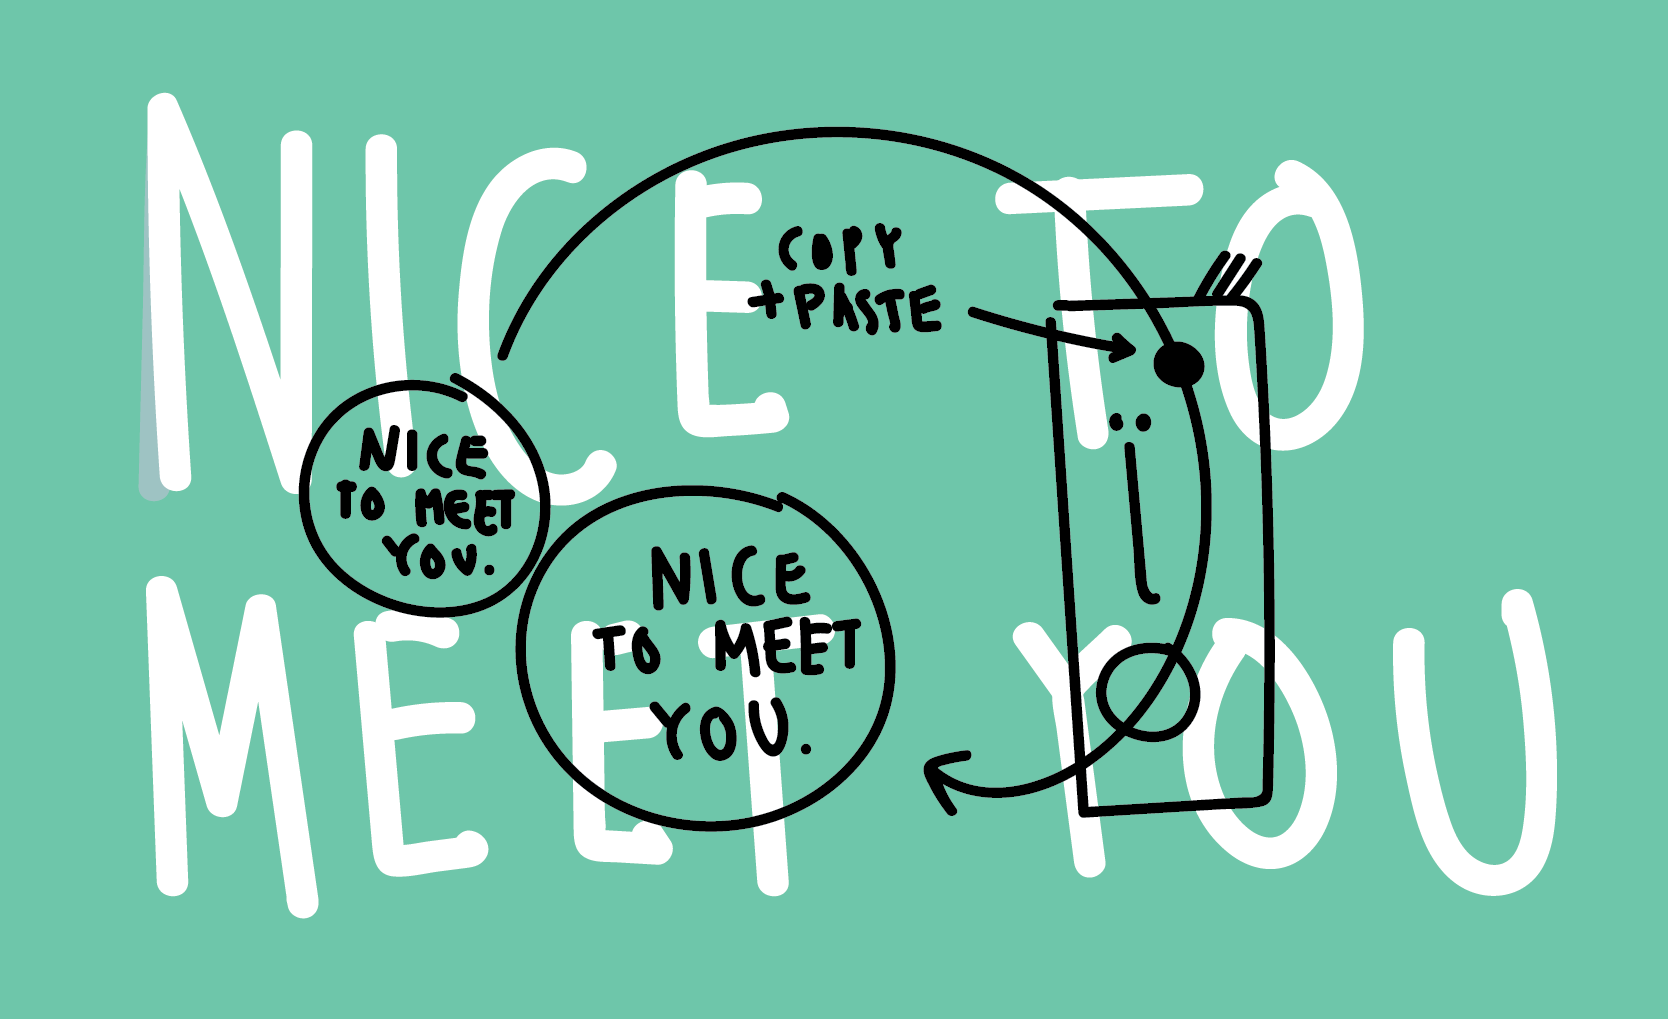 NICE TO
MEET YOU
COPY
+PASTE
NICE
TO MEET
YOU.
NICE
TO MEET
YOU.